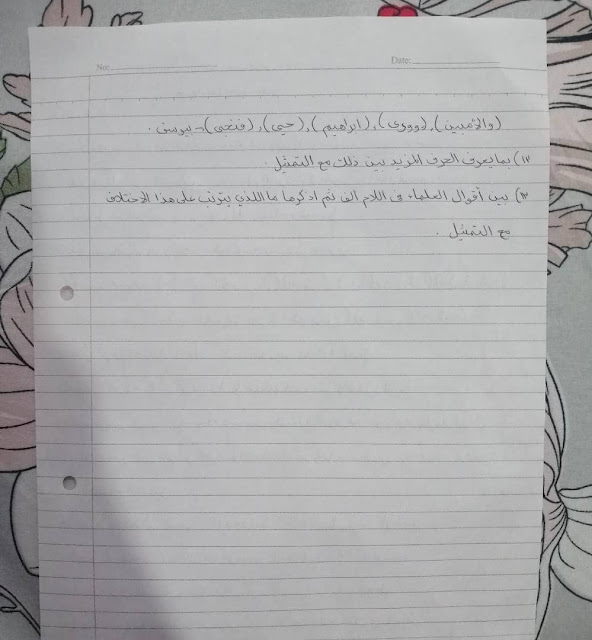 No:
Date:
(والأميين)، (وورى)، (ابراهيم)، (حيى)، (فنجى) - بيونس .
١٢) بما يعرف الحرف المزيد بين ذلك مع التمثيل .
١٣) بين أقوال العلماء فى اللام الف ثم اذكر ما اللذي يترتب على هذا الاختلاف
مع التمثيل .